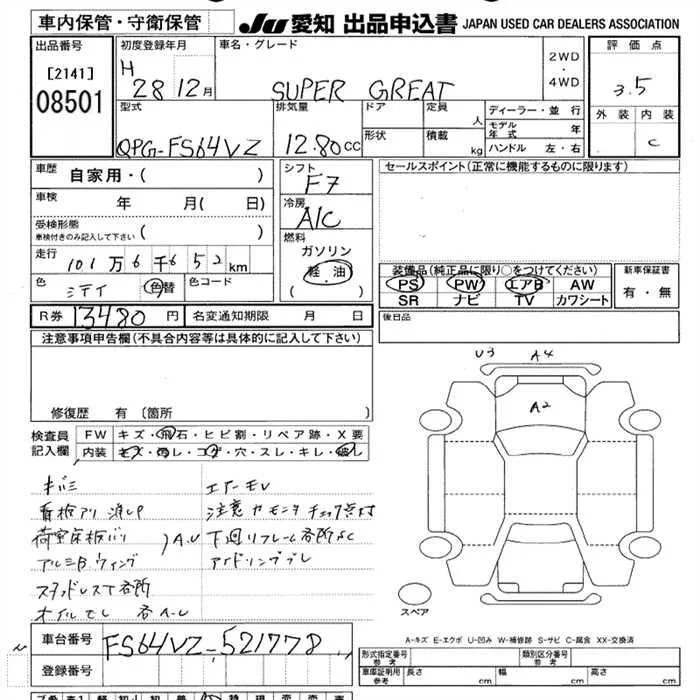 車内保管・守衛保管 JU 愛知 出品申込書 JAPAN USED CAR DEALERS ASSOCIATION
出品番号 初度登録年月 車名・グレード 2WD ・ 4WD 評価点
[2141] H 28 12月 SUPER GREAT 3.5
08501
型式 排気量 ドア 定員 人 ディーラー・並行 外装 内装
QPG-FS64VZ 12.80cc 形状 積載 kg モデル年式 年 C
ハンドル 左・右
車歴 自家用・( ) シフト F7 セールスポイント(正常に機能するものに限ります)
車検 年 月( 日) 冷房 A/C
受検形態 車検付きのみ記入して下さい ( ) 燃料
走行 101万6千652km ガソリン
軽油
( ・ )
色 色替 色コード
装備品(純正品に限り○をつけてください) 新車保証書
PS PW エアB AW 有・無
SR ナビ TV カワシート
R券 13480円 名変通知期限 月 日 後日品
注意事項申告欄(不具合内容等は具体的に記入して下さい)
U3 A4
A2
修復歴 有〔箇所
検査員記入欄 FW キズ・飛石・ヒビ割・リペア跡・X要
内装 キズ・汚レ・コゲ・穴・スレ・キレ・破レ
キバミ
看板アリ
荷室床板バリ
アルミBウィング
A.W
スタッドレスT各所
オイルモレ
エアーモレ
注意
下廻リフレーム各所SC
アイドリングブレ
スペア
A-キズ E-エクボ U-凹み W-補修跡 S-サビ C-腐食 XX-交換済
車台番号 FS64VZ-521778
登録番号
形式指定番号 参考 類別区分番号 参考
車庫証明用 参考 長さ cm 幅 cm 高さ cm